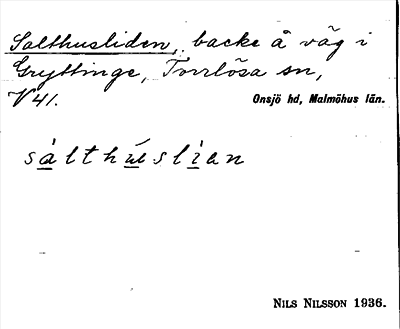 Salthusliden, backe å väg i
Gryttinge, Torrlösa sn,
V 41.
Onsjö hd, Malmöhus län.
sàlthúslìan
NILS NILSSON 1936.